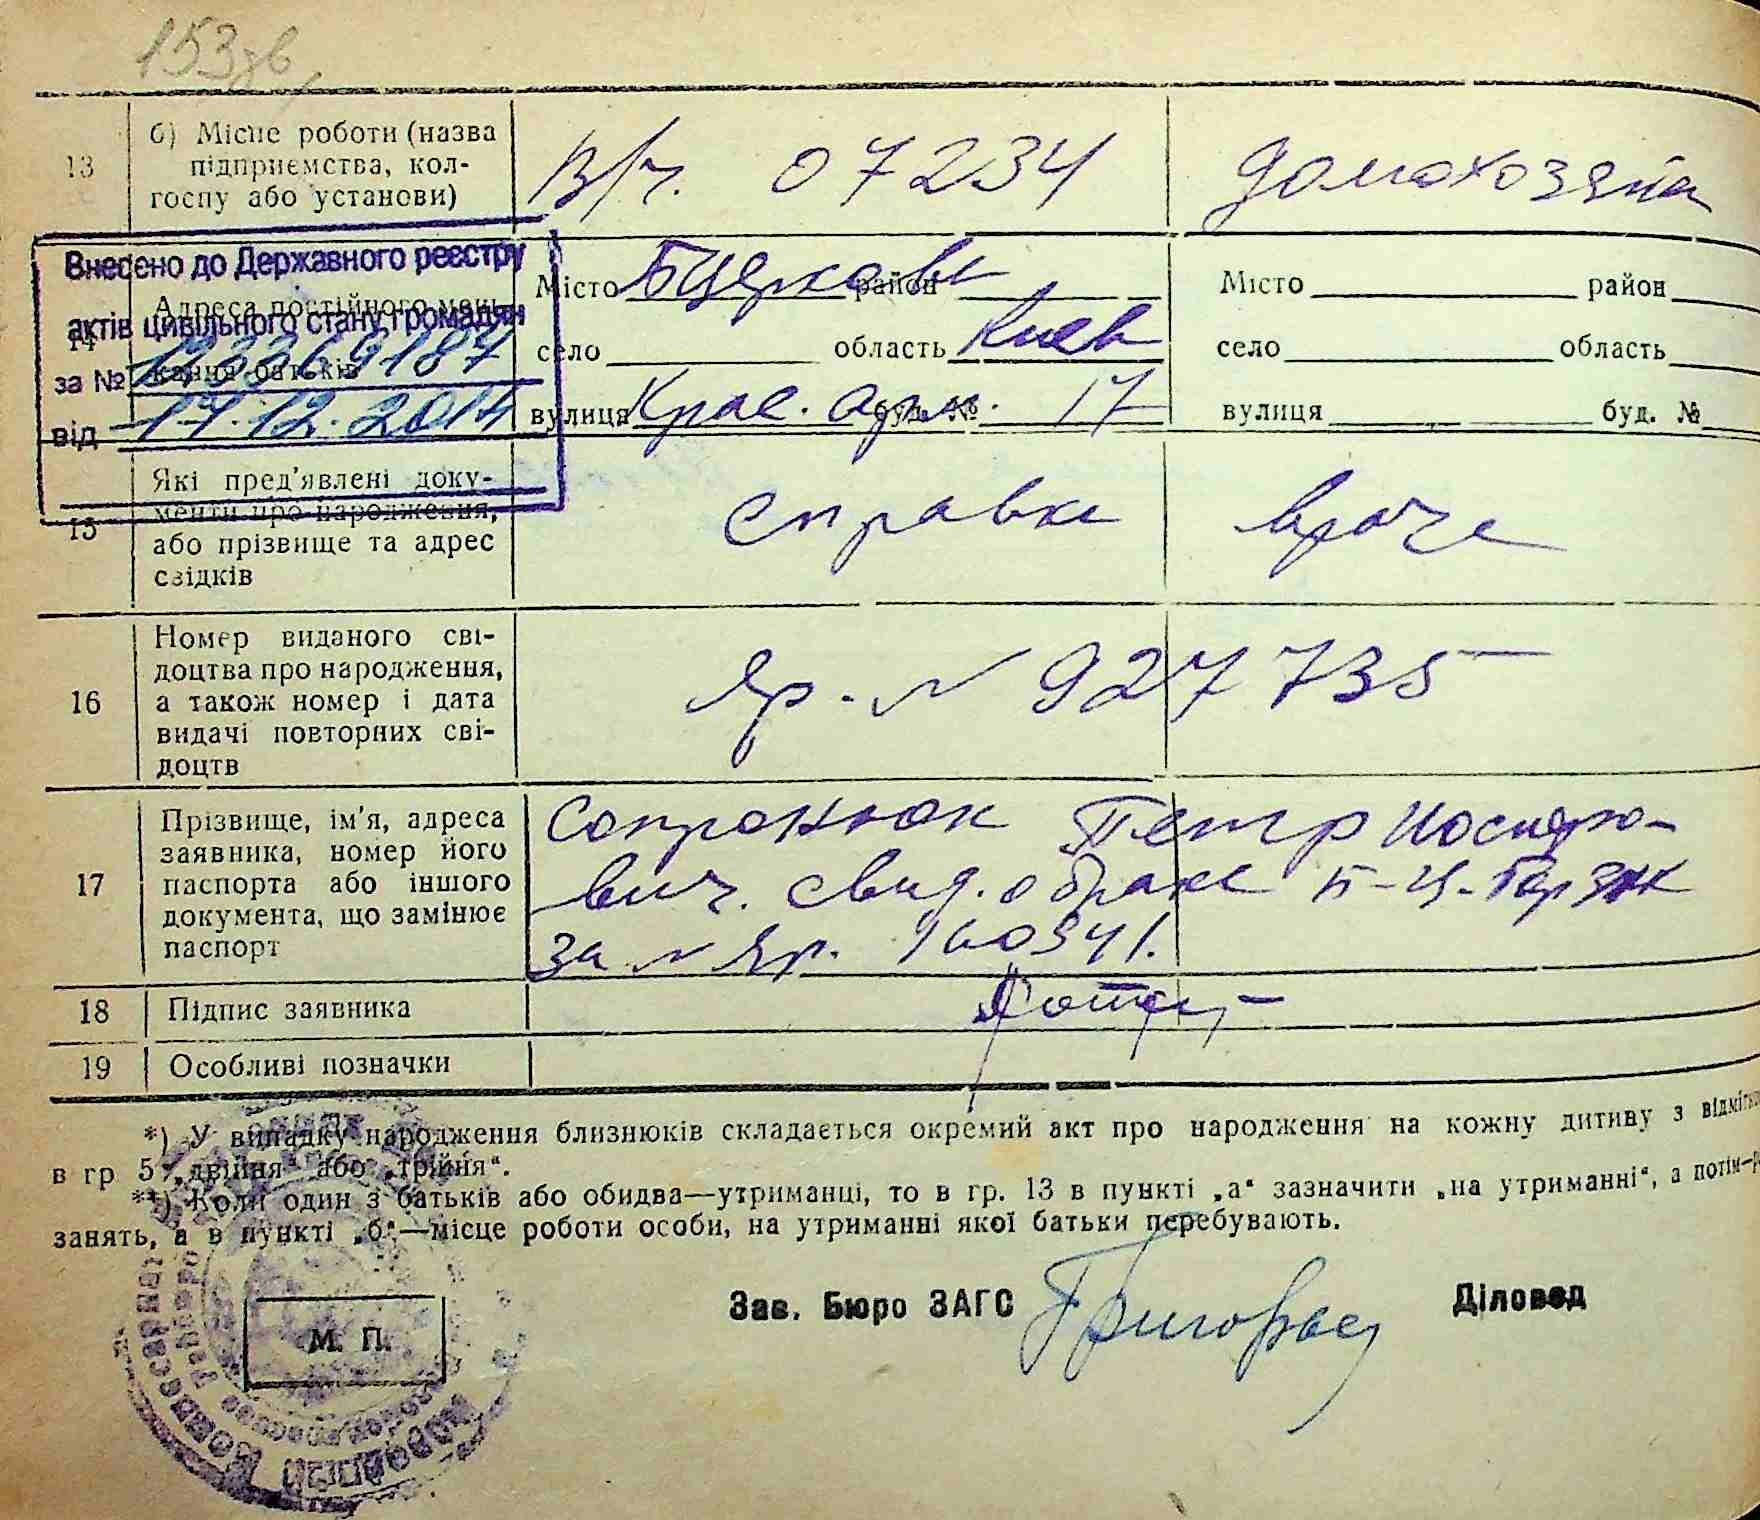 153зв
13
б) Місце роботи (назва
підприємства, кол-
госпу або установи)
В/ч. 07234
домохозяйка
Внесено до Державного реєстру
актів цивільного стану громадян
за №
від 17.12.2014
14
Адреса постійного меш-
кання батьків
Місто Б Церковь район
село область Киев
вулиця Крас. арм. буд. № 17
Місто район
село область
вулиця буд. №
15
Які пред'явлені доку-
менти про народження,
або прізвище та адрес
свідків
справка врача
16
Номер виданого сві-
доцтва про народження,
а також номер і дата
видачі повторних сві-
доцтв
Яр - N 927735
17
Прізвище, ім'я, адреса
заявника, номер його
паспорта або іншого
документа, що замінює
паспорт
Сопронюк Петр Иосифо-
вич. свид. о браке Б-Ц-
за N Яр. 160341.
18
Підпис заявника
19
Особливі позначки
*) У випадку народження близнюків складається окремий акт про народження на кожну дитину з відміткою
в гр 5 „двійня“ або „трійня“.
**) Коли один з батьків або обидва—утриманці, то в гр. 13 в пункті „а“ зазначити „на утриманні“, а потім—
занять, а в пункті „б“—місце роботи особи, на утриманні якої батьки перебувають.
Зав. Бюро ЗАГС
Діловод
М. П.